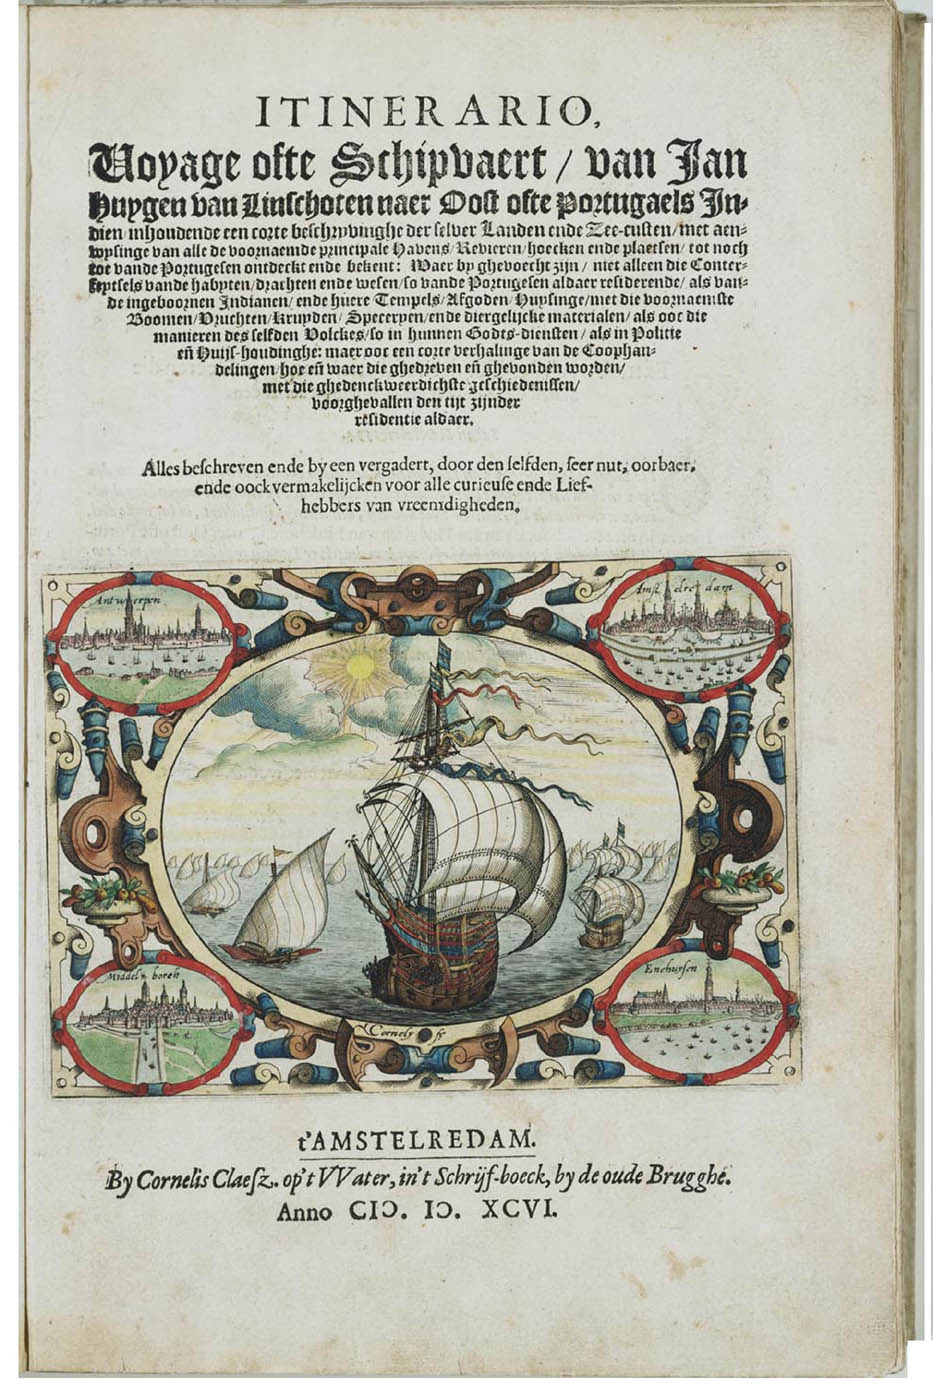 ITINERARIO,
Voyage ofte Schipvaert / van Jan
Huygen van Linschoten naer Oost ofte Portugaels In-
dien inhoudende een corte beschryvinghe der selver Landen ende Zee-custen / met aen-
wysinge van alle de voornaemde principale Havens / Revieren / hoecken ende plaetsen / tot noch
toe vande Portugesen ontdeckt ende bekent: Waer by ghevoecht zijn / niet alleen die Conter-
feytsels vande habyten / drachten ende wesen / so vande Portugesen aldaer residerende / als van-
de ingeboornen Indianen / ende huere Tempels / Afgoden / Huysinge / met die voornaemste
Boomen / Vruchten / Kruyden / Speceryen / ende diergelijcke materialen / als ooc die
manieren des selfden Volckes / so in hunnen Godts-diensten / als in Politie
eñ Huijs-houdinghe: maer ooc een corte verhalinge van de Coophan-
delingen / hoe eñ waer die ghedreven eñ ghevonden worden /
met die ghedenckweerdichste geschiedenissen /
voorghevallen den tijt zijnder
residentie aldaer.
Alles beschreven ende by een vergadert, door den selfden, seer nut, oorbaer,
ende oock vermakelijcken voor alle curieuse ende Lief-
hebbers van vreemdigheden.
Antwerpen
Amstelredam
Middelboreh
Enchuysen
Cornely fe
t'AMSTELREDAM.
By Cornelis Claesz. op't VVater, in't Schrijf-boeck, by de oude Brugghe.
Anno CIƆ. IƆ. XCVI.